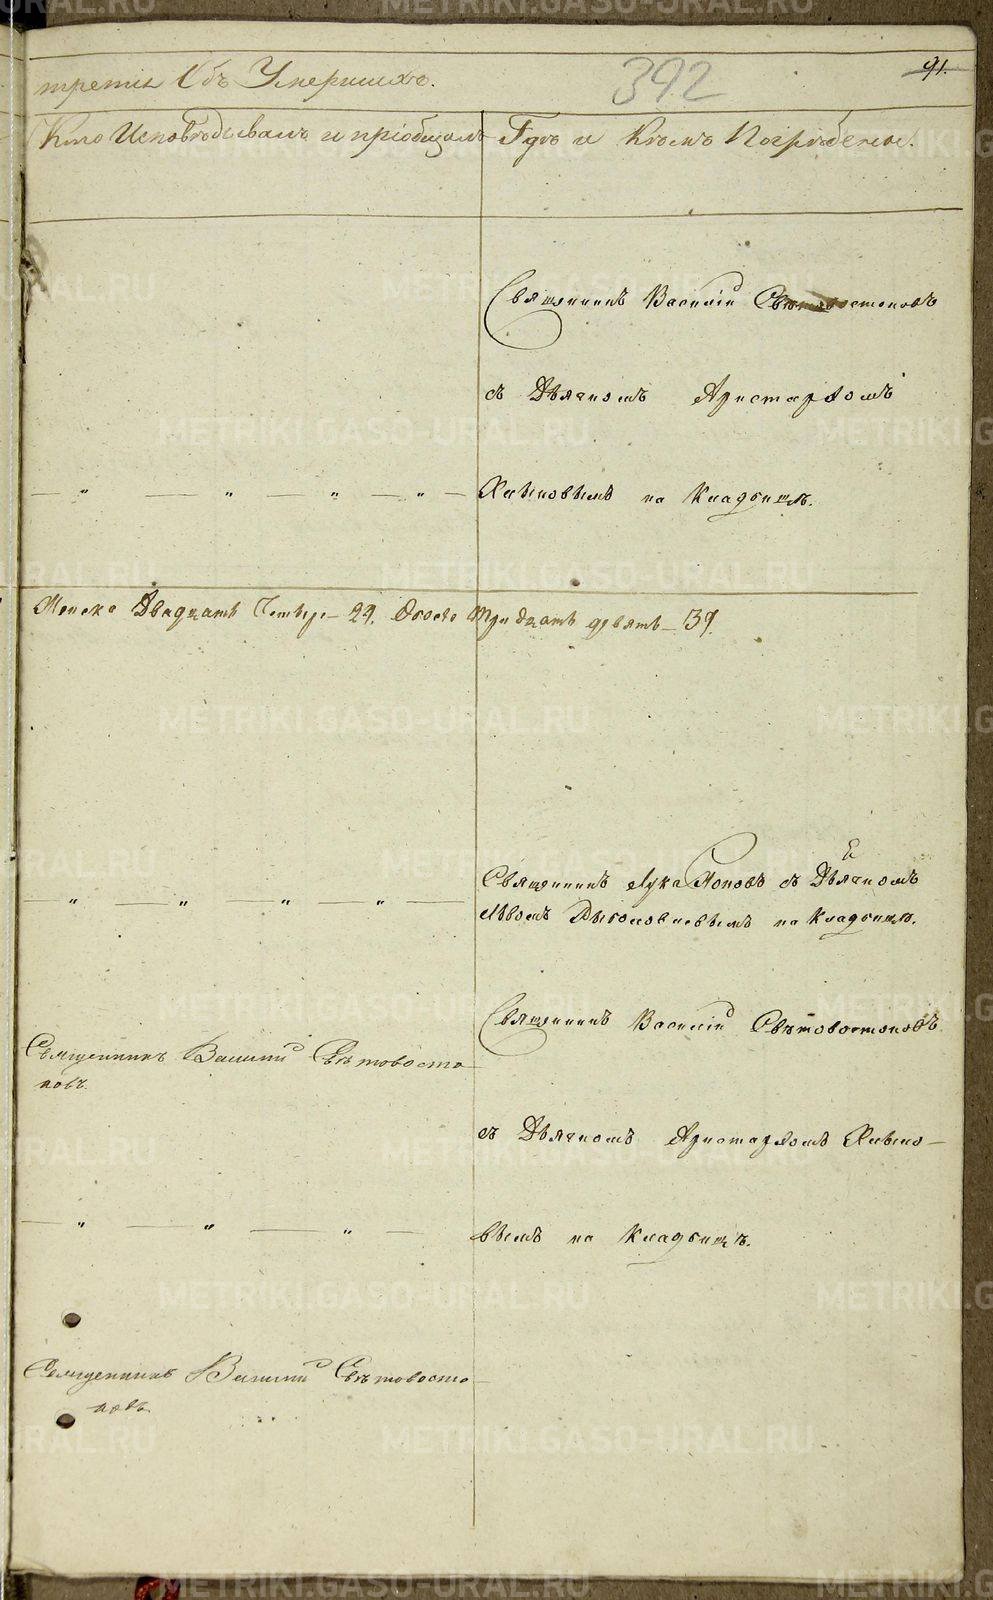 трети Объ Умершихъ.
392
91.
Кто Исповѣдывалъ и пріобщалъ
Гдѣ и Кѣмъ Погребены.
Священникъ Василій Свѣтовостоковъ
съ Дьячкомъ Аристархомъ
— „ — „ — „ — „ —
на Кладбищѣ.
Женска Двадцать Четыре — 24. Обоего Тридцать девять — 39.
Священникъ Лука Поповъ съ Дьячкомъ
„ — „ — „ — „ —
Львомъ на Кладбищѣ.
Священникъ Василій Свѣтовостоковъ
Священникъ Василій Свѣтовосто
ковъ.
съ Дьячкомъ Аристархомъ
— „ — „ — „ —
вымъ на Кладбищѣ.
Священникъ Василій Свѣтовосто
ковъ
METRIKI.GASO-URAL.RU